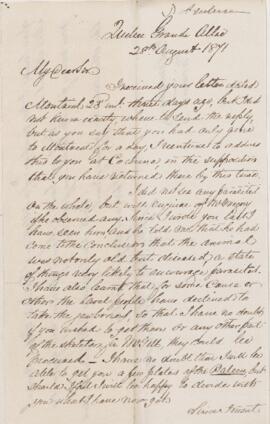 Anderson
Quebec Grande Allée
28th August 1871
My Dear Sir
I received your letter dated
Montreal 23 inst. three days ago, but I did
not know exactly where to send the reply,
but as you say that you had only gone
to Montreal for a day, I venture to address
this to you at Cacouna, in the supposition
that you have returned there by this time.
I did not see any parasites
on the whale, but will enquire of Mr Gregory
if he observed any. Since I wrote you last I
have seen him and he told me that he had
come to the conclusion that the animal
was not only old but diseased, a state
of things very likely to encourage parasites.
I have also learnt that for some cause or
other the Laval people have declined to
take the jaw bones, so that I have no doubt
if you wished to get them or any other part
of the skeleton, they could be
procured — I have no doubt I will be
able to get you a few plates of the Baleen, but
should I fail I will be happy to divide with
you what I have now got.